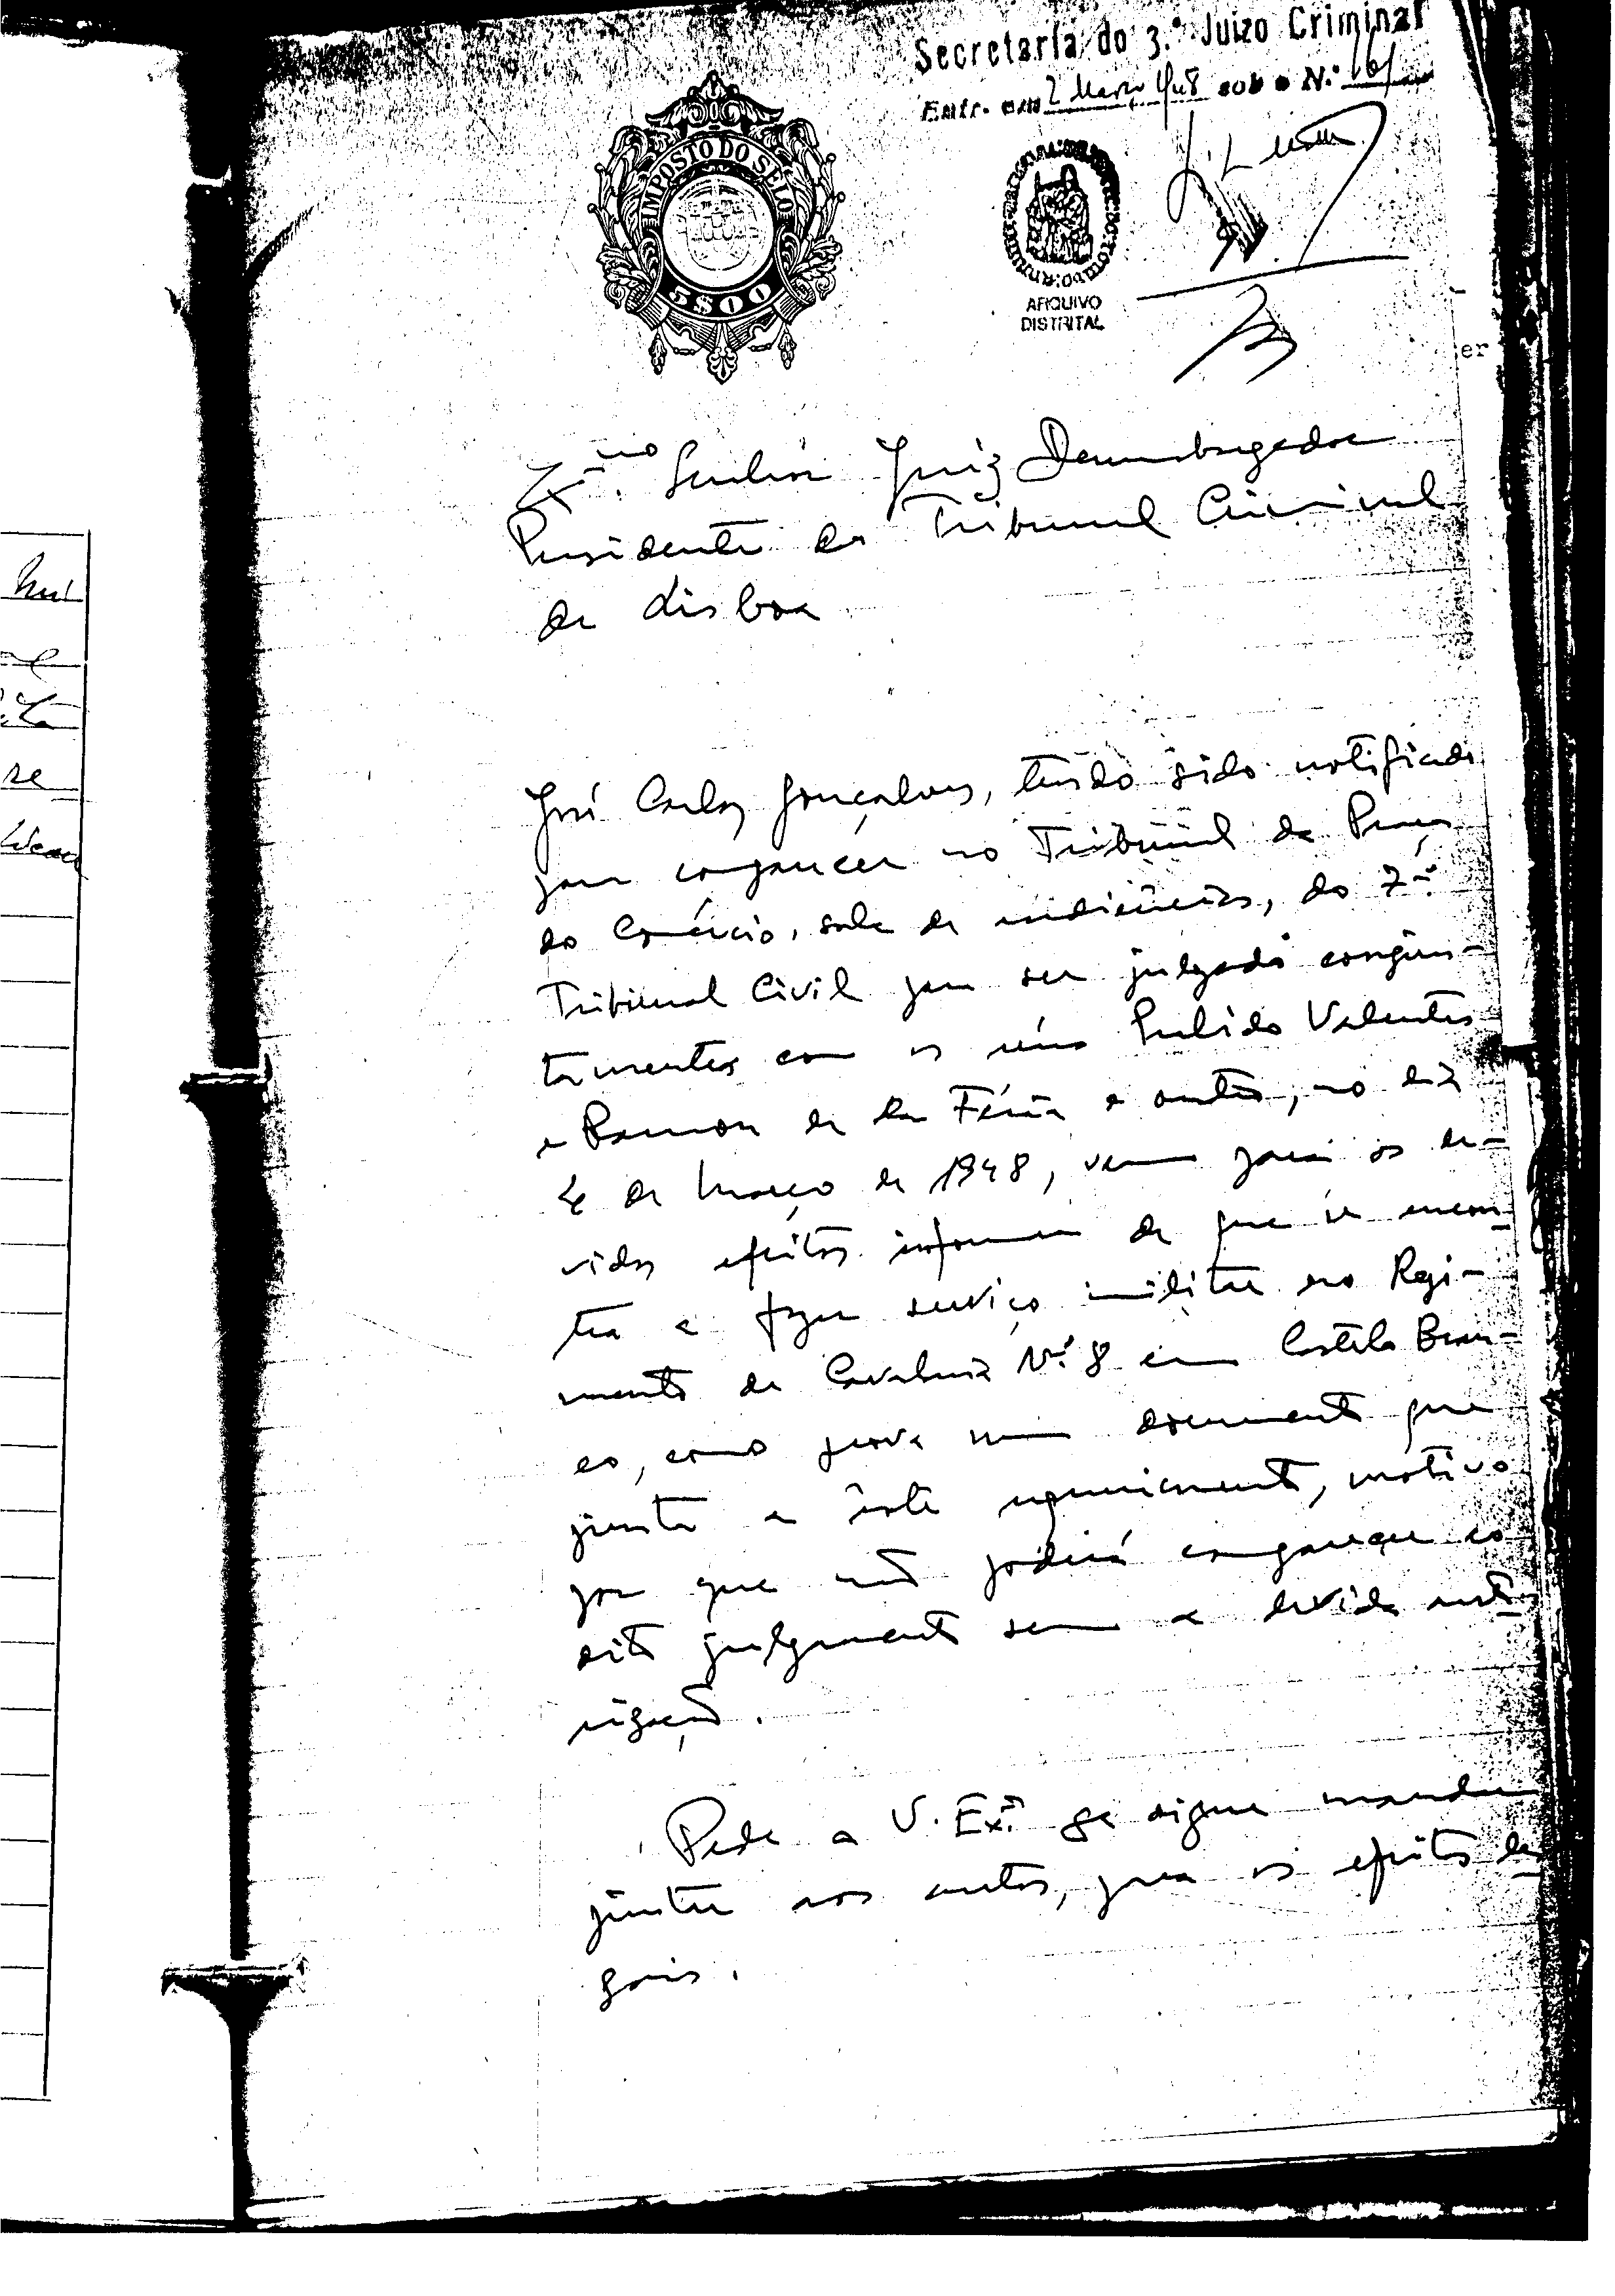 Secretaria do 3.º Juizo Criminal
Entr. em 2 Março 948 sob o N.º 161
IMPOSTO DO SELO
5$00
ARQUIVO
DISTRITAL
er
Exmo. Senhor Juiz Desembargador
Presidente do Tribunal Criminal
de Lisboa
José Carlos Gonçalves, tendo sido notificado
para comparecer no Tribunal da Praça
do Comércio, sala de audiências, do 7º
Tribunal Civil para ser julgado conjun-
tamentes com os réus Pulido Valentes
e Ramon de la Féria e outros, no dia
4 de Março de 1948, vem para os de-
vidos efeitos informar de que se encon-
tra a fazer serviço militar no Regi-
mento de Cavalaria Nº 8 em Castelo Bran-
co, como prova num documento que
junta a êste requerimento, motivo
por que não poderá comparecer ao
dito julgamento sem a devida auto-
rização.
Pede a V. Exª se digne mandar
juntar aos autos, para os efeitos le-
gais.
se